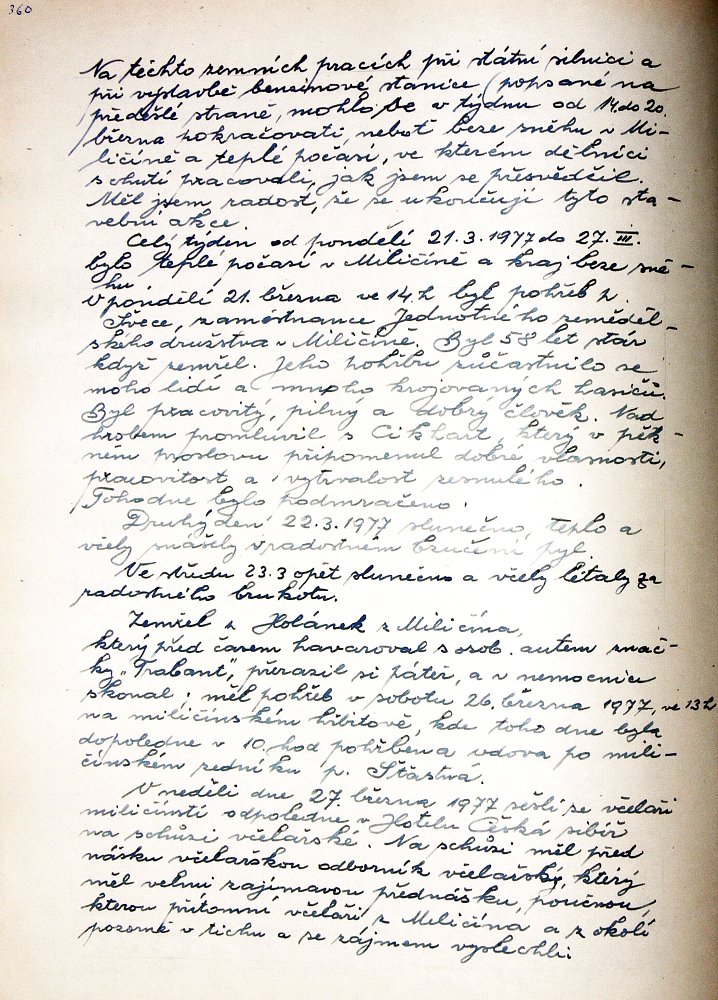 360
Na těchto zemních pracích při státní silnici a
při výstavbě benzinové stanice (popsané na
předešlé straně, mohlo se v týdnu od 14. do 20.
března pokračovati, neboť beze sněhu v Mi-
ličíně a teplé počasí, ve kterém dělníci
s chutí pracovali, jak jsem se přesvědčil.
Měl jsem radost, že se ukončují tyto sta-
vební akce.
Celý týden od pondělí 21.3.1977 do 27. III.
bylo teplé počasí v Miličíně a kraj beze sně-
hu.
V pondělí 21. března ve 14.h byl pohřeb p.
Švece, zaměstnance Jednotného zeměděl-
ského družstva v Miličíně. Byl 58 let stár
když zemřel. Jeho pohřbu zúčastnilo se
moho lidí a mnoho krojovaných hasičů.
Byl pracovitý, pilný a dobrý člověk. Nad
hrobem promluvil s Cikhart, který v pěk-
ném proslovu připomenul dobré vlasnosti,
pracovitost a vytrvalost zesnulého.
Toho dne bylo podmračeno.
Druhý den 22.3.1977 slunečno, teplo a
včely snášely v radostném bzučení pyl.
Ve středu 23.3 opět slunečno a včely létaly za
radostného brukotu.
Zemřel z Holánek z Miličína,
který před časem havaroval s osob. autem znač-
ky "Trabant", přerazil si páteř, a v nemocnici
skonal; měl pohřeb v sobotu 26. března 1977, ve 13h
na miličínském hřbitově, kde toho dne byla
dopoledne v 10. hod pohřbena vdova po mili-
čínském zedníku p. Šťastná.
V neděli dne 27. března 1977 sešli se včelaři
miličínští odpoledne v Hotelu Česká sibiř
na schůzi včelařské. Na schůzi měl před
nášku včelařskou odborník včelařský, který
měl velmi zajímavou přednášku, poučnou,
kterou přítomní včelaři z Miličína a z okolí
pozorně v tichu a se zájmem vyslechli.